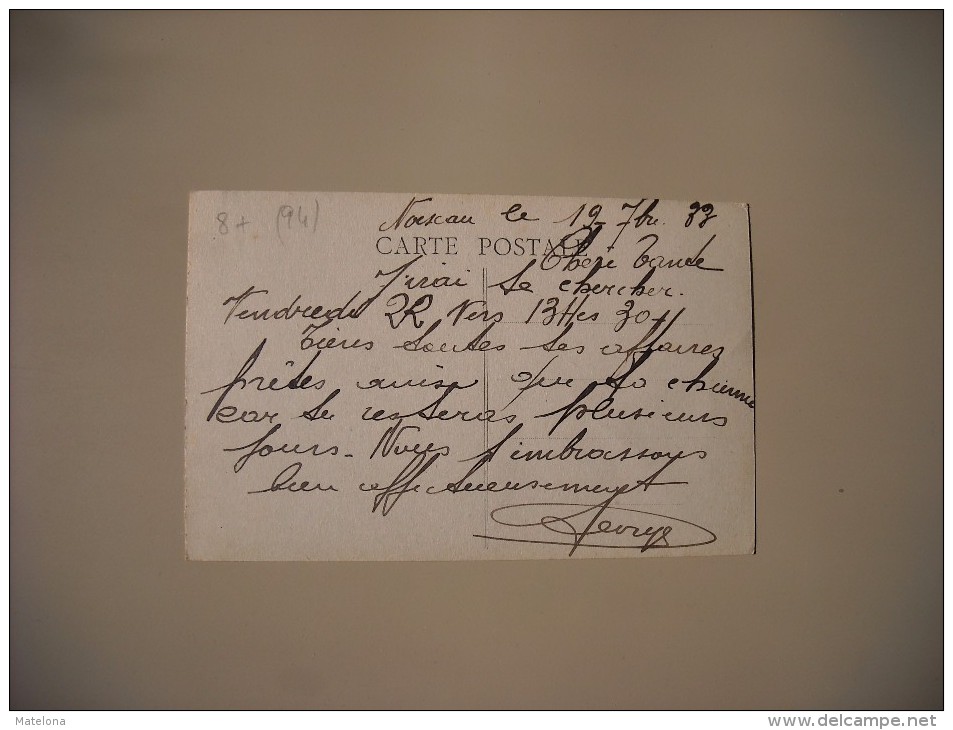 8+ (94)
Noiseau le 19 7bre 33
CARTE POSTALE
Chère Tante
J'irai te chercher.
Vendredi 22 Vers 13 Hes 30
Tiens toutes tes affaires
prêtes ainsi que ta chienne
car tu resteras plusieurs
jours. Nous t'embrassons
bien affectueusement
Matelona
www.delcampe.net